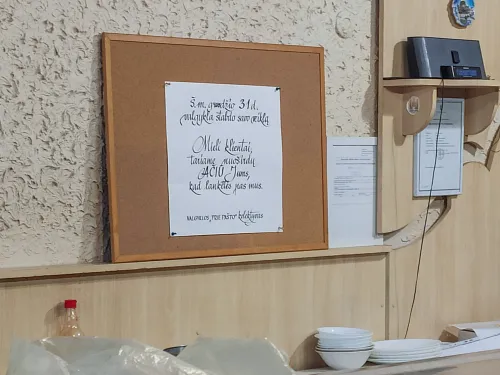 Š.m. gruodžio 31 d.
valgykla stabdo savo veiklą
Mieli klientai,
tariame nuoširdų
AČIŪ Jums,
kad lankėtės pas mus.
VALGYKLOS „PRIE PAŠTO“ kolektyvas